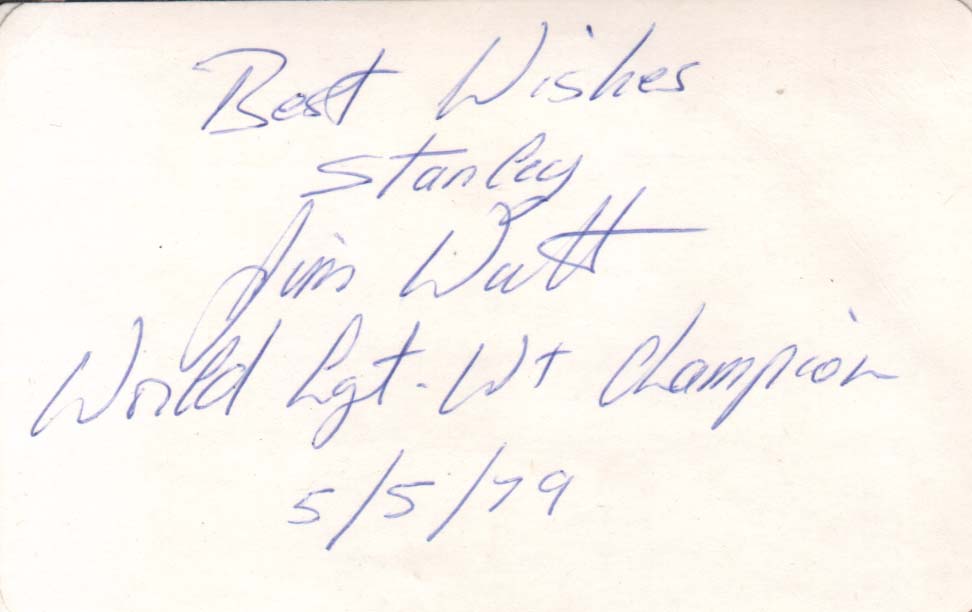 Best Wishes
Stanley
Jim Watt
World Lgt. Wt Champion
5/5/79